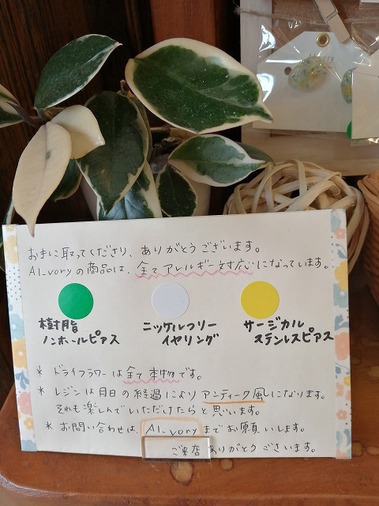 お手に取ってくださり、ありがとうございます。
AI_voryの商品は、全てアレルギー対応になっています。
樹脂
ノンホールピアス
ニッケルフリー
イヤリング
サージカル
ステンレスピアス
* ドライフラワーは全て本物です。
* レジンは月日の経過によりアンティーク風になります。
それも楽しんでいただけたらと思います。
* お問い合わせは、AI_voryまでお願いします。
ご来店ありがとうございます。